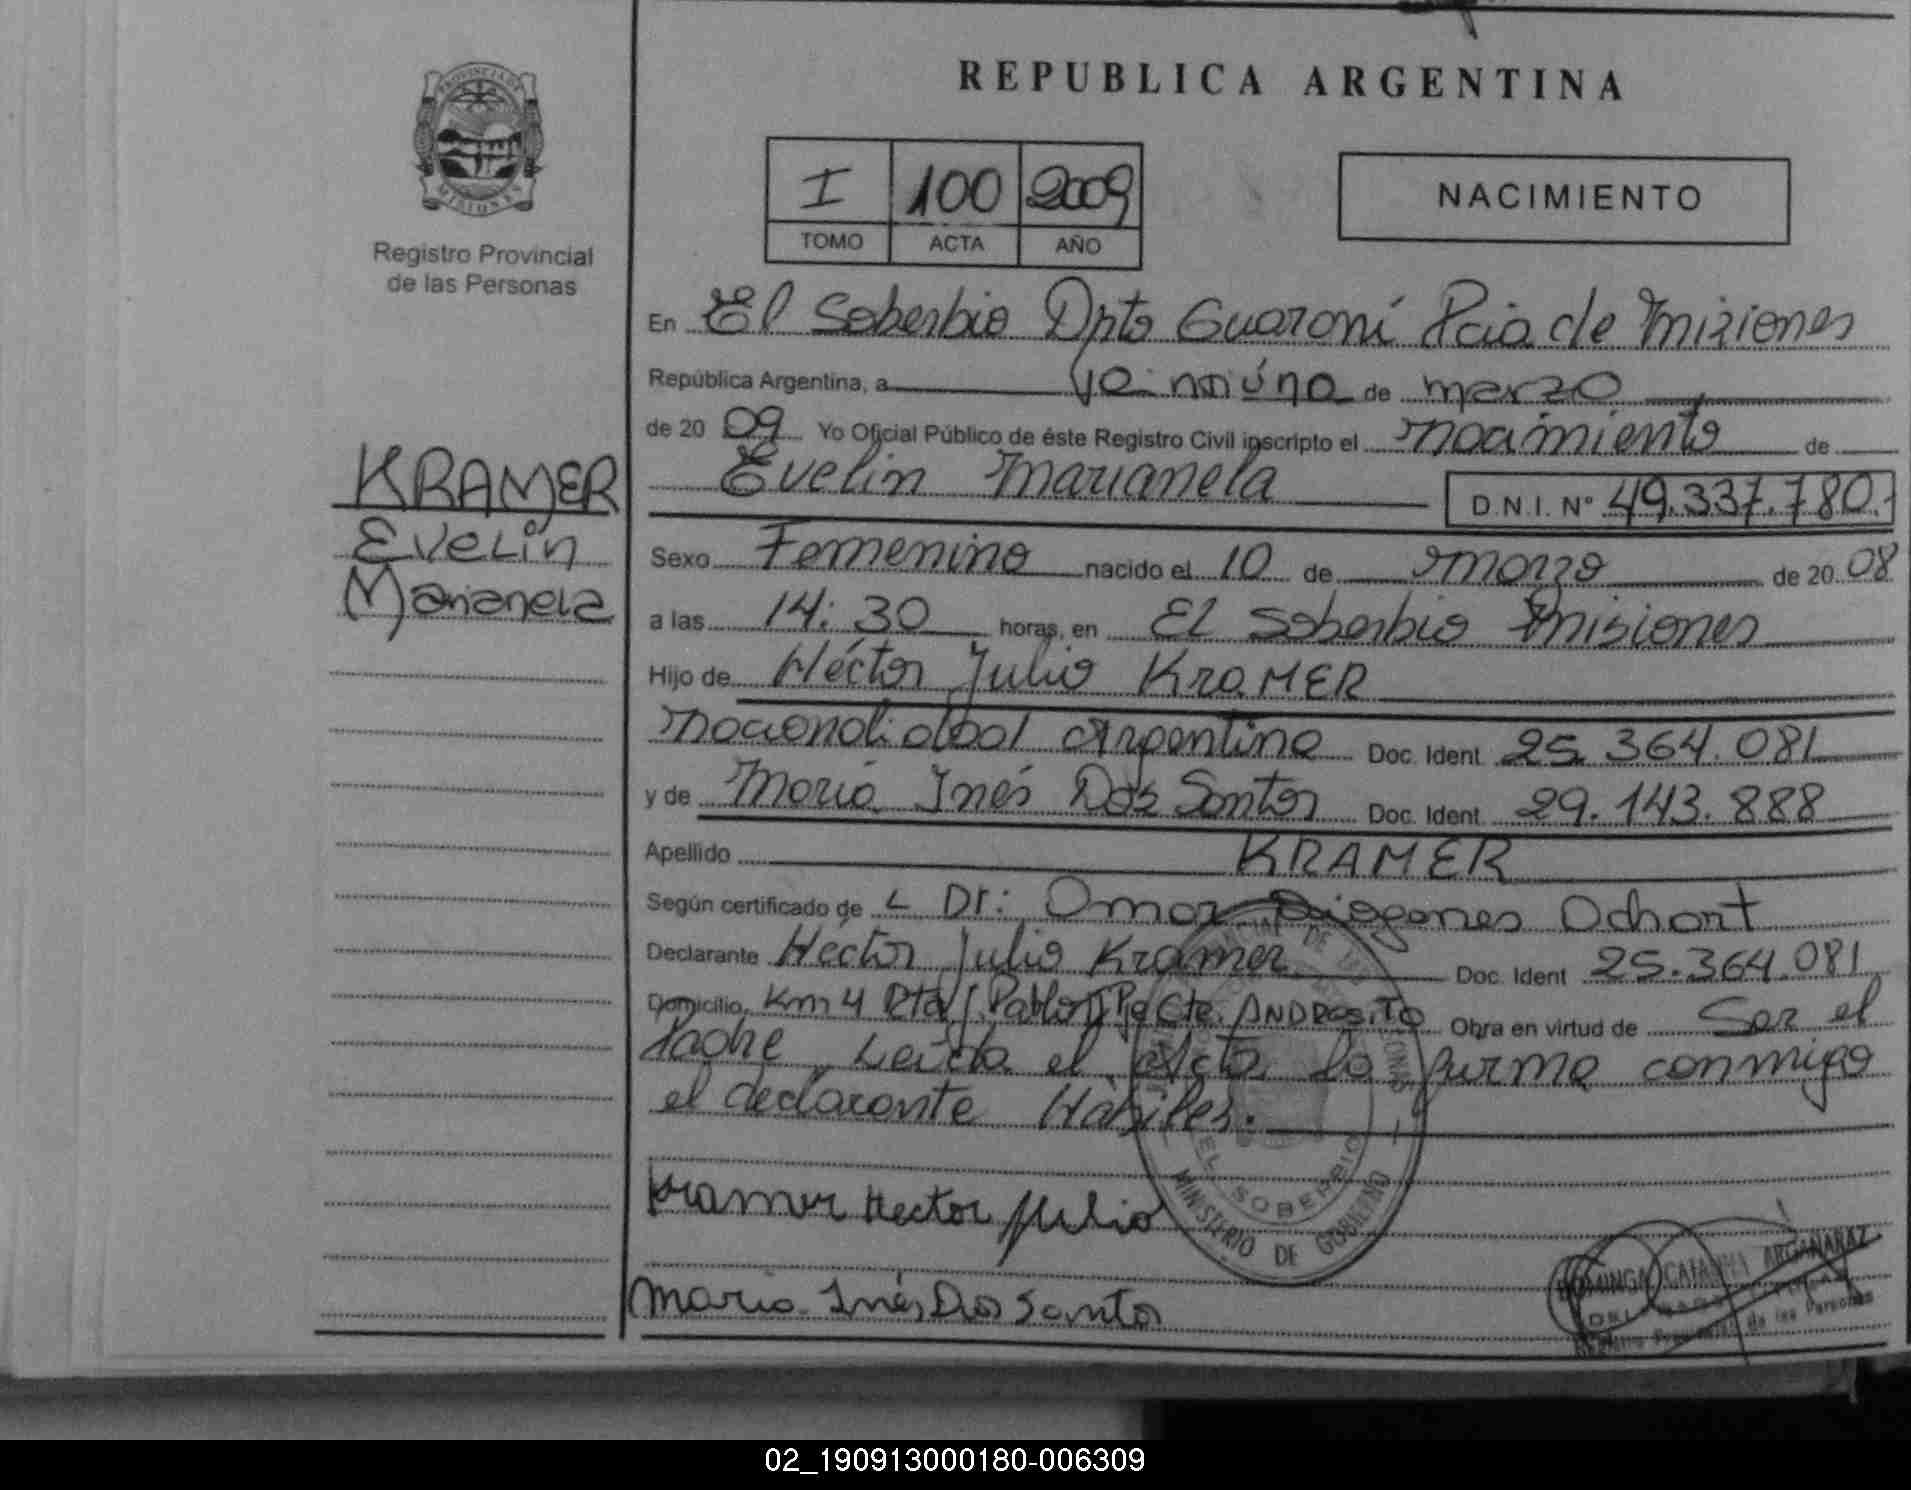 PROVINCIA DE
MISIONES
Registro Provincial
de las Personas
KRAMER
Evelin
Marianela
REPUBLICA ARGENTINA
I 100 2009
TOMO ACTA AÑO
NACIMIENTO
En El Soberbio Dpto Guaraní Pcia de Misiones
República Argentina, a veintiúno de marzo
de 20 09 Yo Oficial Público de éste Registro Civil inscripto el nacimiento de
Evelin Marianela D.N.I. N° 49.337.780.
Sexo Femenino nacido el 10 de marzo de 20 08
a las 14:30 horas, en El Soberbio Misiones
Hijo de Héctor Julio KRAMER
nacionalidad Argentina Doc. Ident 25.364.081
y de María Inés Dos Santos Doc. Ident 29.143.888
Apellido KRAMER
Según certificado de Dr: Omar Diogenes Ochort
Declarante Héctor Julio Kramer Doc. Ident 25.364.081
Domicilio Km 4 Rta J. Pablo II Pje Cte. ANDRESITO Obra en virtud de Ser el
Padre Leída el Acta la firma conmigo
el declarante Hábiles.
EL SOBERBIO
MINISTERIO DE GOBIERNO
Kramer Hector Julio
Maria Inés Dos Santos
DOMINGA CATALINA ARGAÑARAZ
de las Personas
02_190913000180-006309